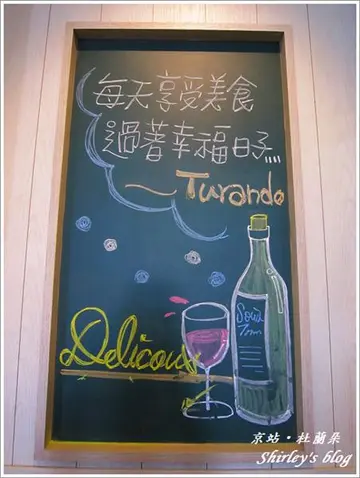 每天享受美食
過著幸福日子,,,,
~Turando
Delicous
京站·杜蘭朵
Shirley's blog